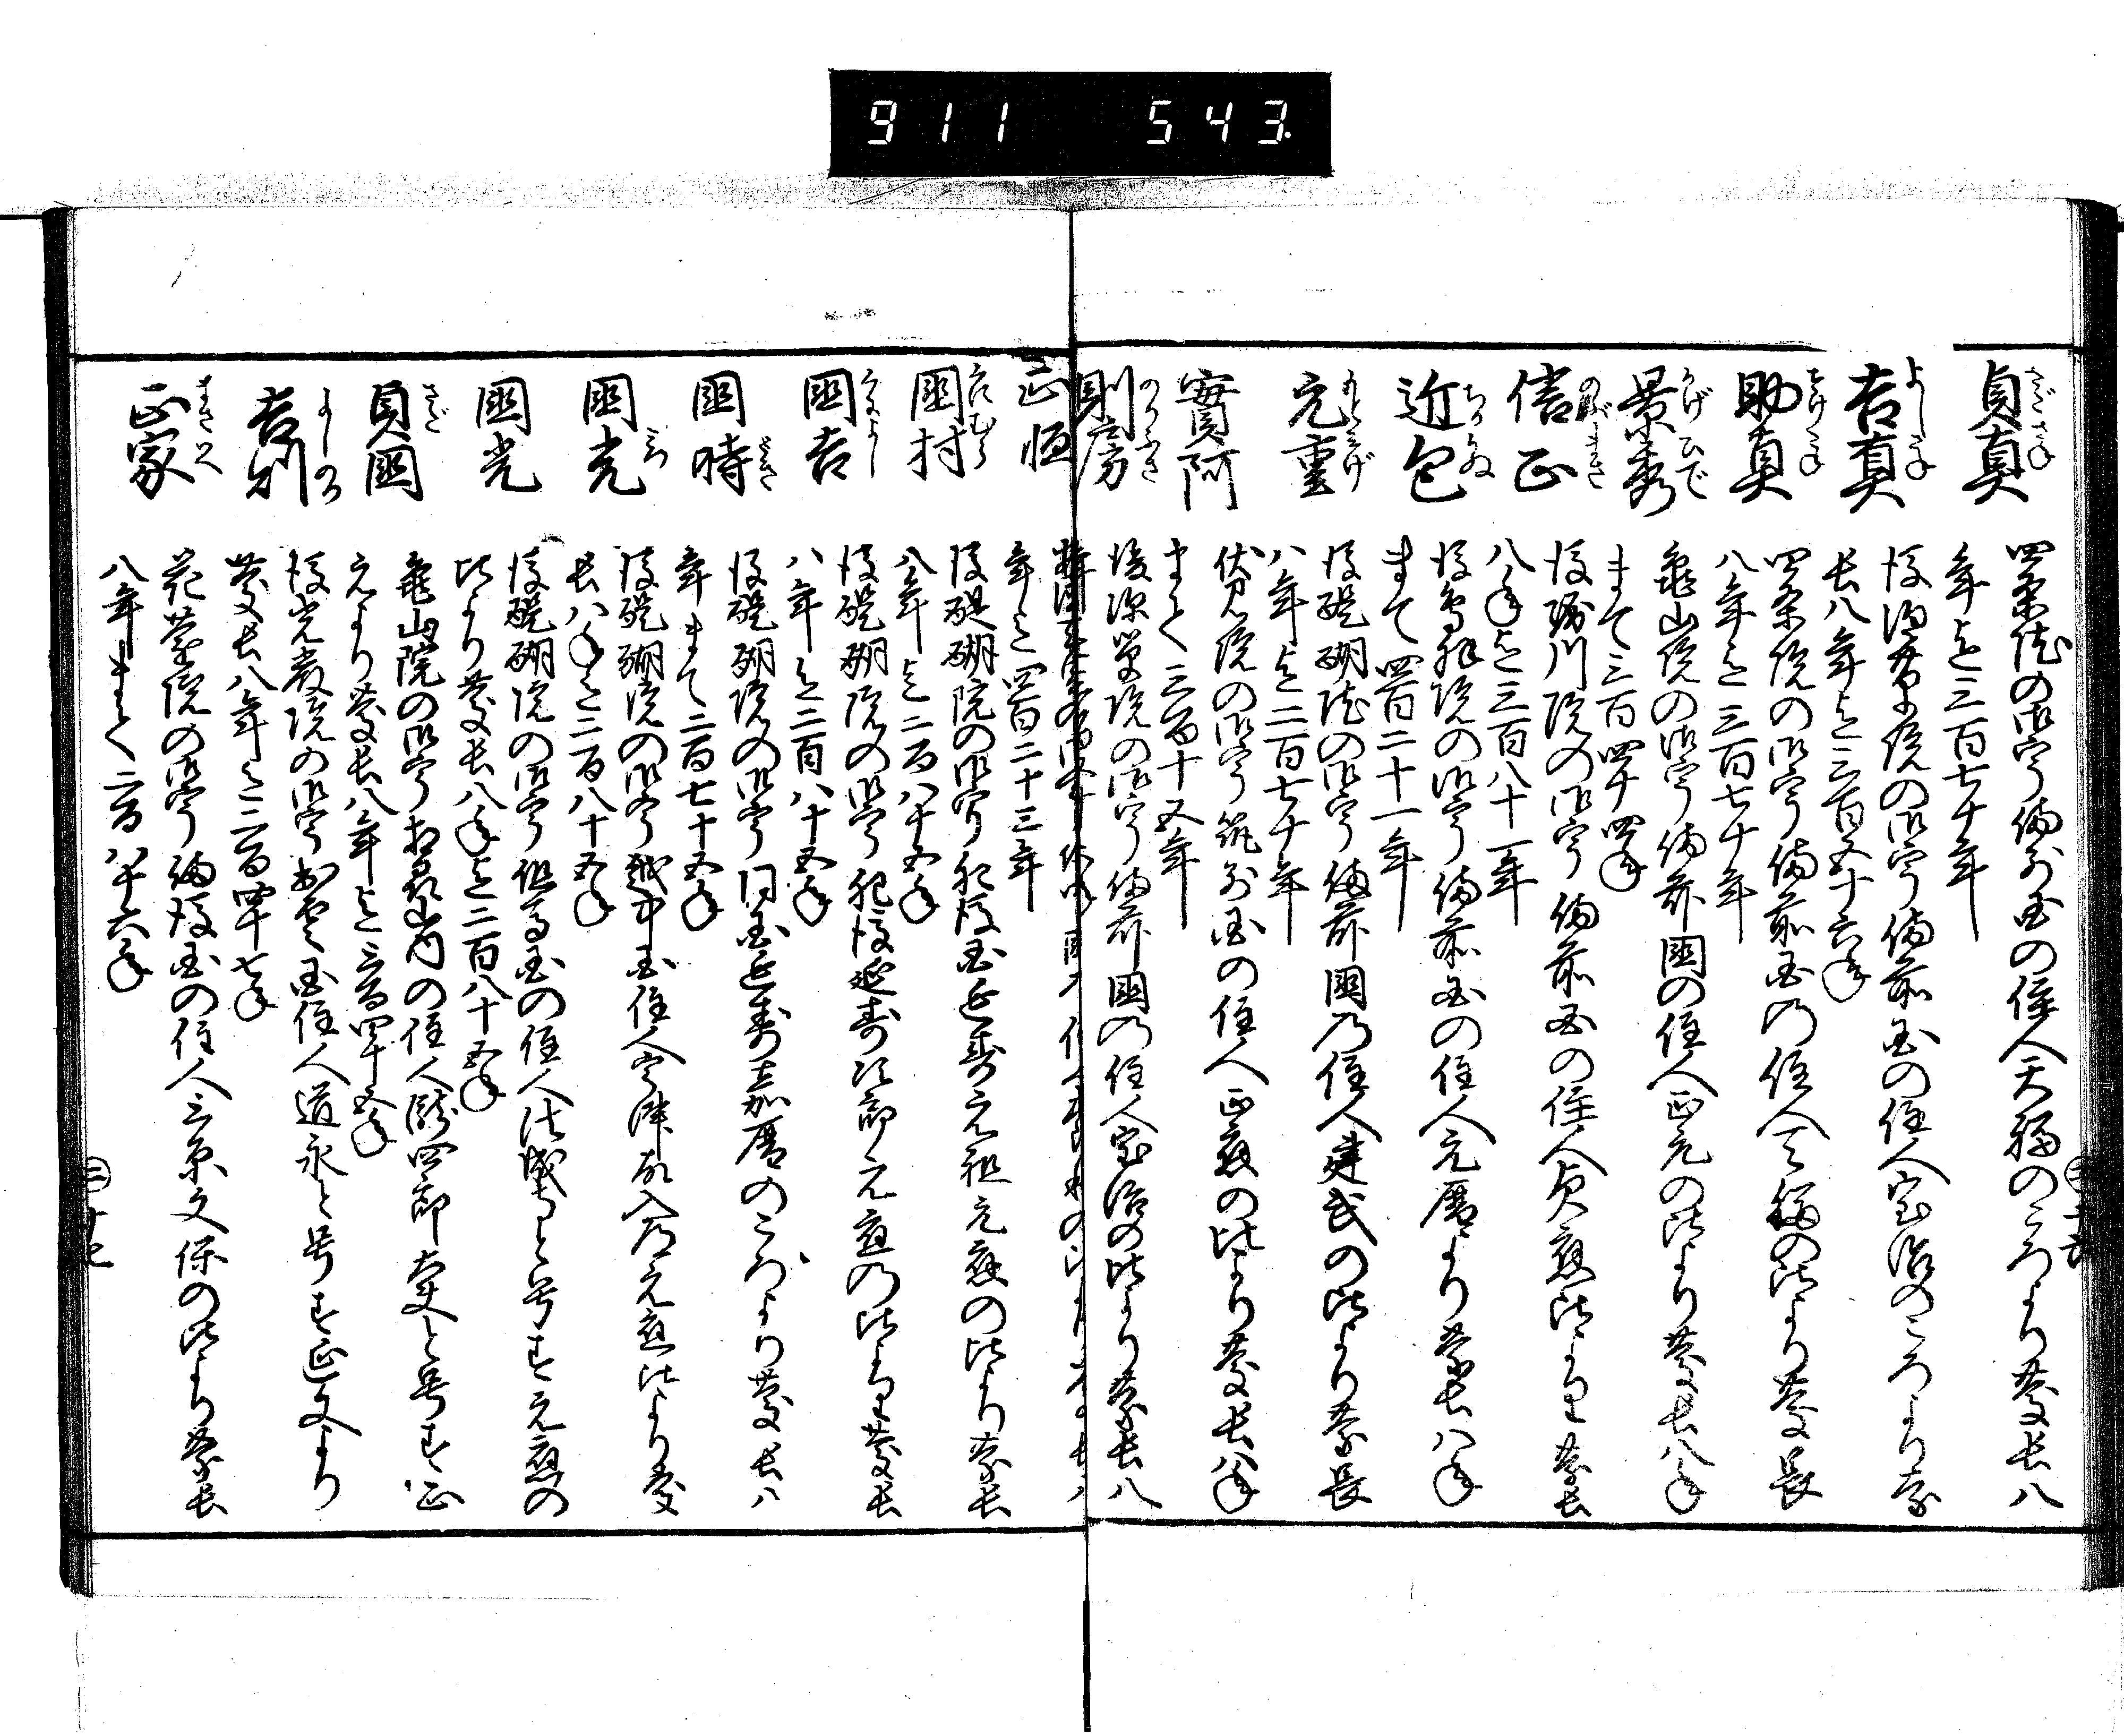 911 543
貞真 さださね
四条院の御宇備前国の住人天福のころより慶長八
年迄三百七十年
吉真 よしさね
後深草院の御宇備前国の住人宝治のころより慶
長八年迄三百五十六年
助真 すけさね
四条院の御宇備前国乃住人天福の比より慶長
八年迄三百七十年
景秀 かげひで
亀山院の御宇備前国の住人正元の比より慶長八年
まて三百四十四年
信正 のぶまさ
後堀川院の御宇備前国の住人貞応比より慶長
八年迄三百八十一年
近包 ちかかね
後鳥羽院の御宇備前国の住人元暦より慶長八年
まて四百二十一年
元重 もとしげ
後醍醐院の御宇備前国乃住人建武の比より慶長
八年迄二百七十年
實阿
伏見院の御宇筑前国の住人正応の比より慶長八年
まて三百十五年
則房 のりふさ
後深草院の御宇備前國乃住人宝治の比より慶長八
正恒
年迄四百二十三年
國村 くにむら
後醍醐院の御宇肥後国延寿元祖元応の比より慶長
八年迄二百八十五年
國吉 くによし
後醍醐院の御宇肥後延寿次郎元応乃比より慶長
八年迄二百八十五年
國時 とき
後醍醐院の御宇同国延寿嘉暦のころより慶長八
年まて二百七十五年
國光 みつ
後醍醐院の御宇越中国住人宇津故入乃元応比より慶
長八年迄二百八十五年
國光
後醍醐院の御宇但馬国の住人法城寺と号す元応の
比より慶長八年迄二百八十五年
貞國 さだ
亀山院の御宇粟山内の住人藤四郎左近と号す正
元より慶長八年迄三百四十五年
吉則 よしのり
後光厳院の御宇出雲国住人道永と号す延文より
慶長八年迄二百四十七年
正家 まさいへ
花薗院の御宇備後国の住人三原文保の比より慶長
八年まて二百八十六年